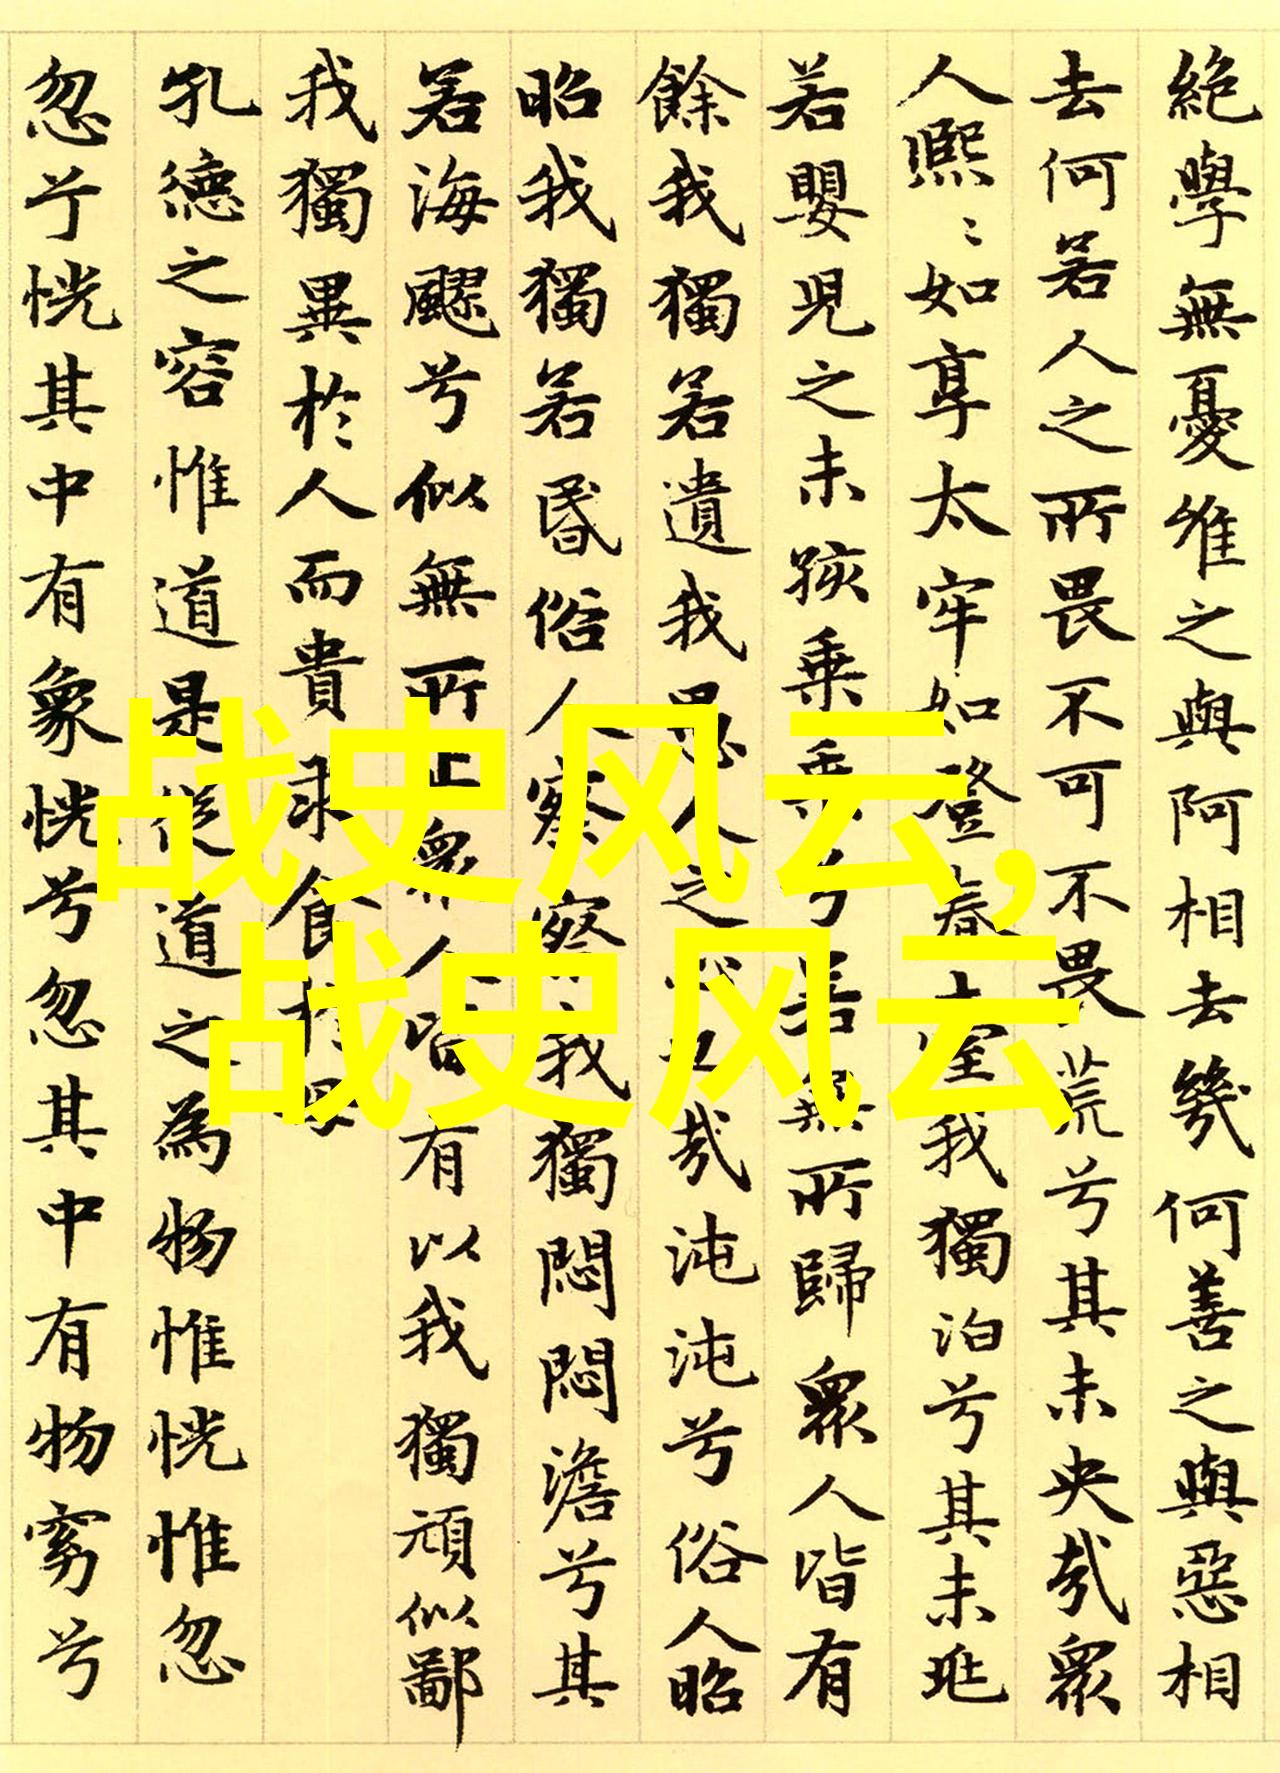 絶學無憂唯之與阿相去幾何善之與惡相
去何若人之所畏不可不畏荒兮其未央哉眾
人熙〻如享太牢如登春臺我獨泊兮其未兆
若嬰兒之未孩乘乘兮若無所歸眾人皆有
餘我獨若遺我愚人之心也哉沌沌兮俗人昭
昭我獨若昏俗人察察我獨悶悶澹兮其
若海飂兮似無所止眾人皆有以我獨頑似鄙
我獨異於人而貴求食於母
孔德之容惟道是從道之為物惟恍惟忽
忽兮恍其中有象恍兮忽其中有物窈兮
战史风云,
战史风云